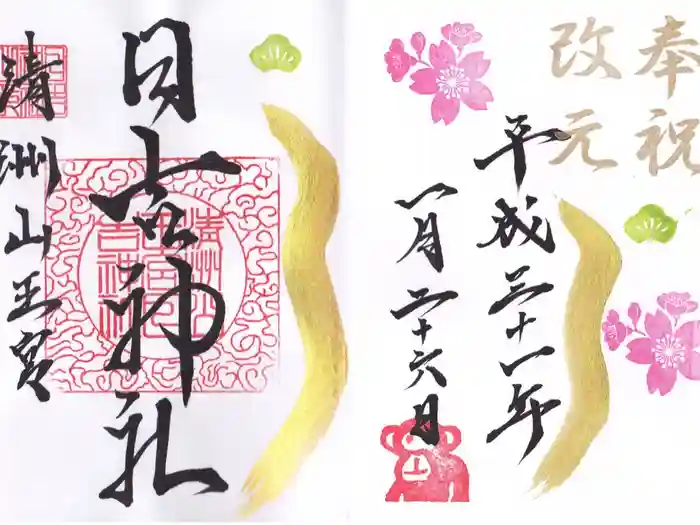 奉祝
改元
平成三十一年
一月二十六日
日吉神社
清洲山王宮
清洲山
王宮日
吉神社